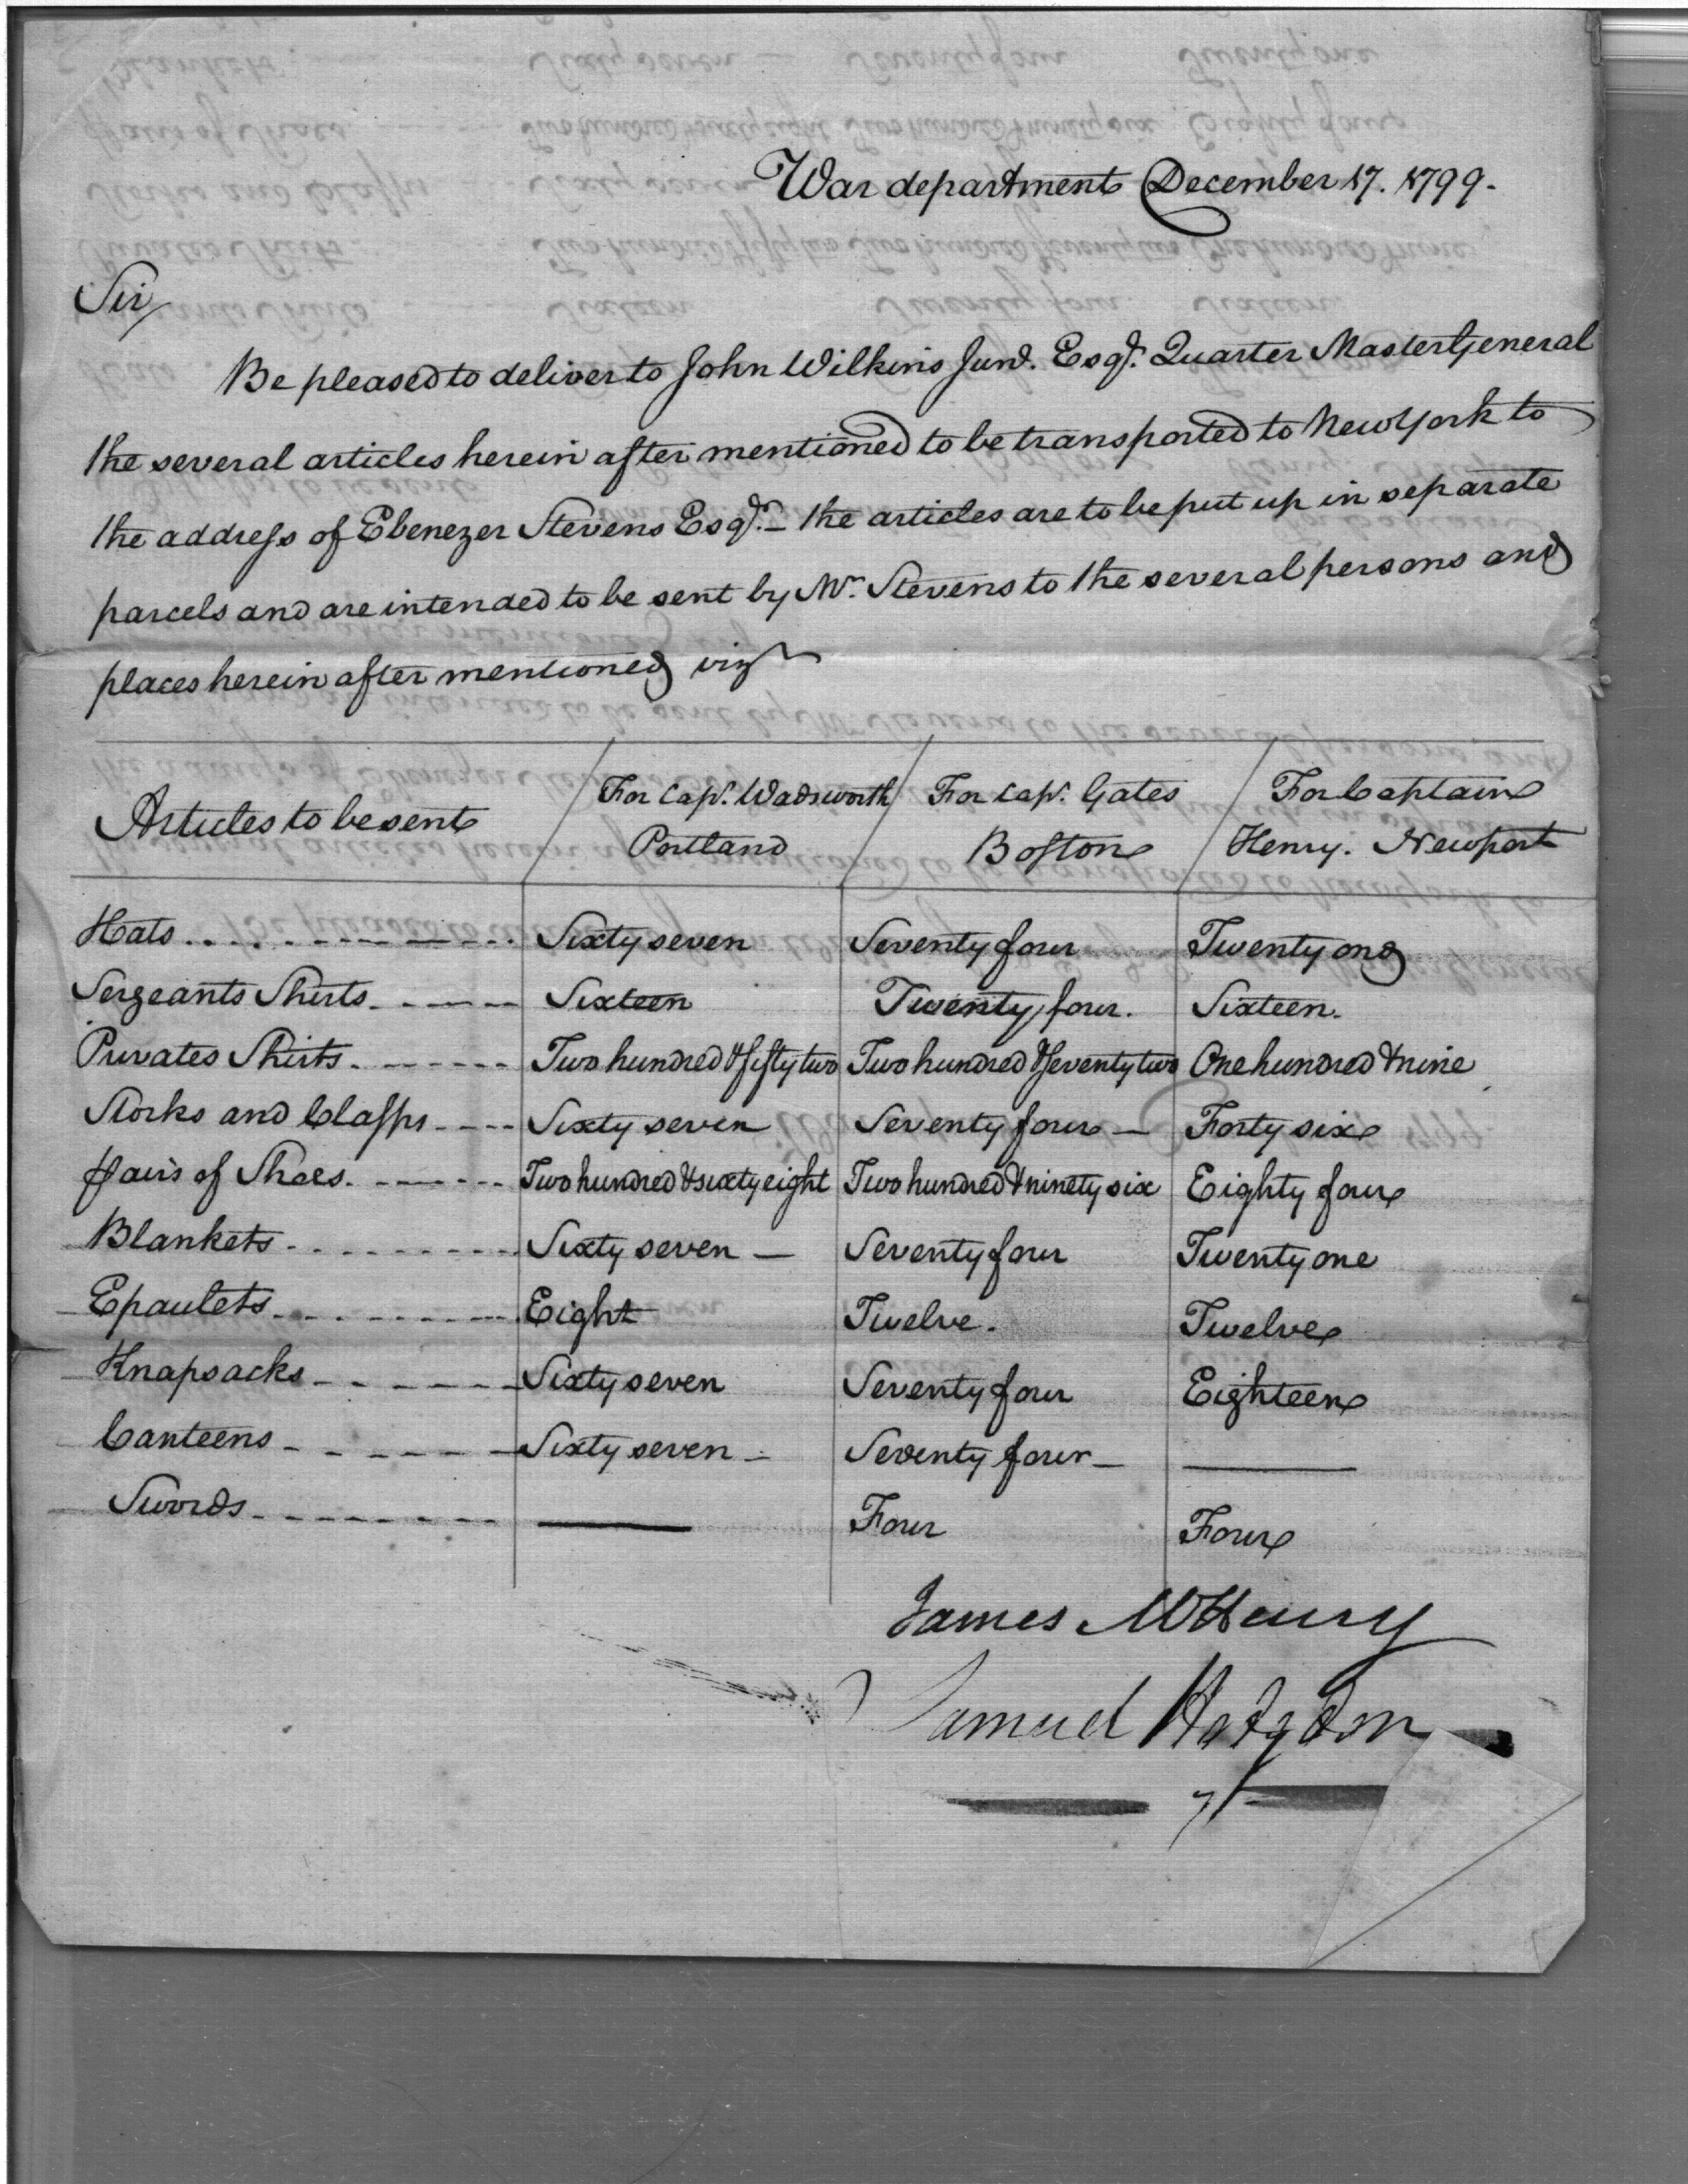 War department December 17. 1799.
Sir
Be pleased to deliver to John Wilkins Junr. Esqr. Quarter Master General
the several articles herein after mentioned to be transported to New York to
the address of Ebenezer Stevens Esqr. – the articles are to be put up in separate
parcels and are intended to be sent by Mr. Stevens to the several persons and
places herein after mentioned viz
Articles to be sent For Capt. Wadsworth Portland For Capt. Gates Boston For Captain Henry. Newport
Hats Sixty seven Seventy four Twenty one
Sergeants Shirts Sixteen Twenty four. Sixteen.
Privates Shirts Two hundred & fifty two Two hundred & seventy two One hundred & nine
Stocks and Clasps Sixty seven Seventy four – Forty six
pairs of Shoes Two hundred & sixty eight Two hundred & ninety six Eighty four
Blankets Sixty seven – Seventy four Twenty one
Epaulets Eight Twelve. Twelve
Knapsacks Sixty seven Seventy four Eighteen
Canteens Sixty seven – Seventy four – —
Swords — Four Four
James McHenry
Samuel Hodgdon